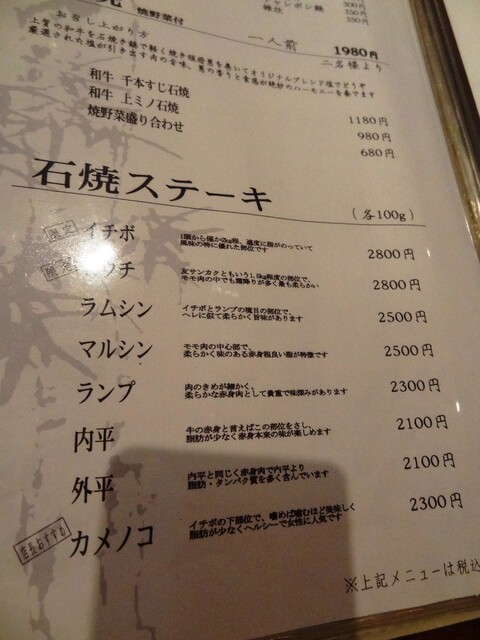 焼野菜付
チャンポン麺
雑炊
300円
350円
350円
お召し上がり方
一人前
1980円
二名様より
上質の和牛を石焼き鍋で軽く焼き
厳選された塩が引き出す肉の旨味、
和牛 千本すじ石焼
1180円
和牛 上ミノ石焼
980円
焼野菜盛り合わせ
680円
石焼ステーキ
(各100g)
限定
イチボ
1頭から僅か2kg程、適度に脂がのっていて
風味の特に優れた部位です
2800円
限定
ウチ
友サンカクともいう1.5kg程度の部位で、
モモ肉の中でも霜降りが多く最も柔らかい
2800円
ラムシン
イチボとランプの境目の部位で、
ヘレに似て柔らかく旨味があります
2500円
マルシン
モモ肉の中心部で、
柔らかく味のある赤身程良い脂が特徴です
2500円
ランプ
肉のきめが細かく、
柔らかな赤身肉として貴重で味深みがあります
2300円
内平
牛の赤身と言えばこの部位をさし、
脂肪が少なく赤身本来の味が楽しめます
2100円
外平
内平と同じく赤身肉で内平より
脂肪・タンパク質を多く含んでいます
2100円
店長おすすめ
カメノコ
イチボの下部位で、噛めば噛むほど美味しく
脂肪が少なくヘルシーで女性に人気です
2300円
※上記メニューは税込